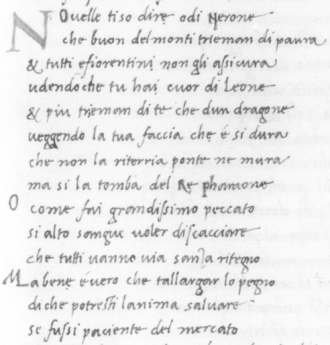 Nouelle ti so dire odi Nerone
che buon del monti trieman di paura
& tutti efiorentini non gli assicura
udendo che tu hai cuor di Leone
& piu trieman di te che dun dragone
ueggendo la tua faccia che é si dura
che non la riterria ponte ne mura
ma si la tomba del Re phamone
O come fai grandissimo peccato
si alto sangue uoler discacciare
che tutti uanno uia sanza ritegno
Ma bene é uero che tallargar lo pegno
di che potresti lanima saluare
se fussi paciente del mercato